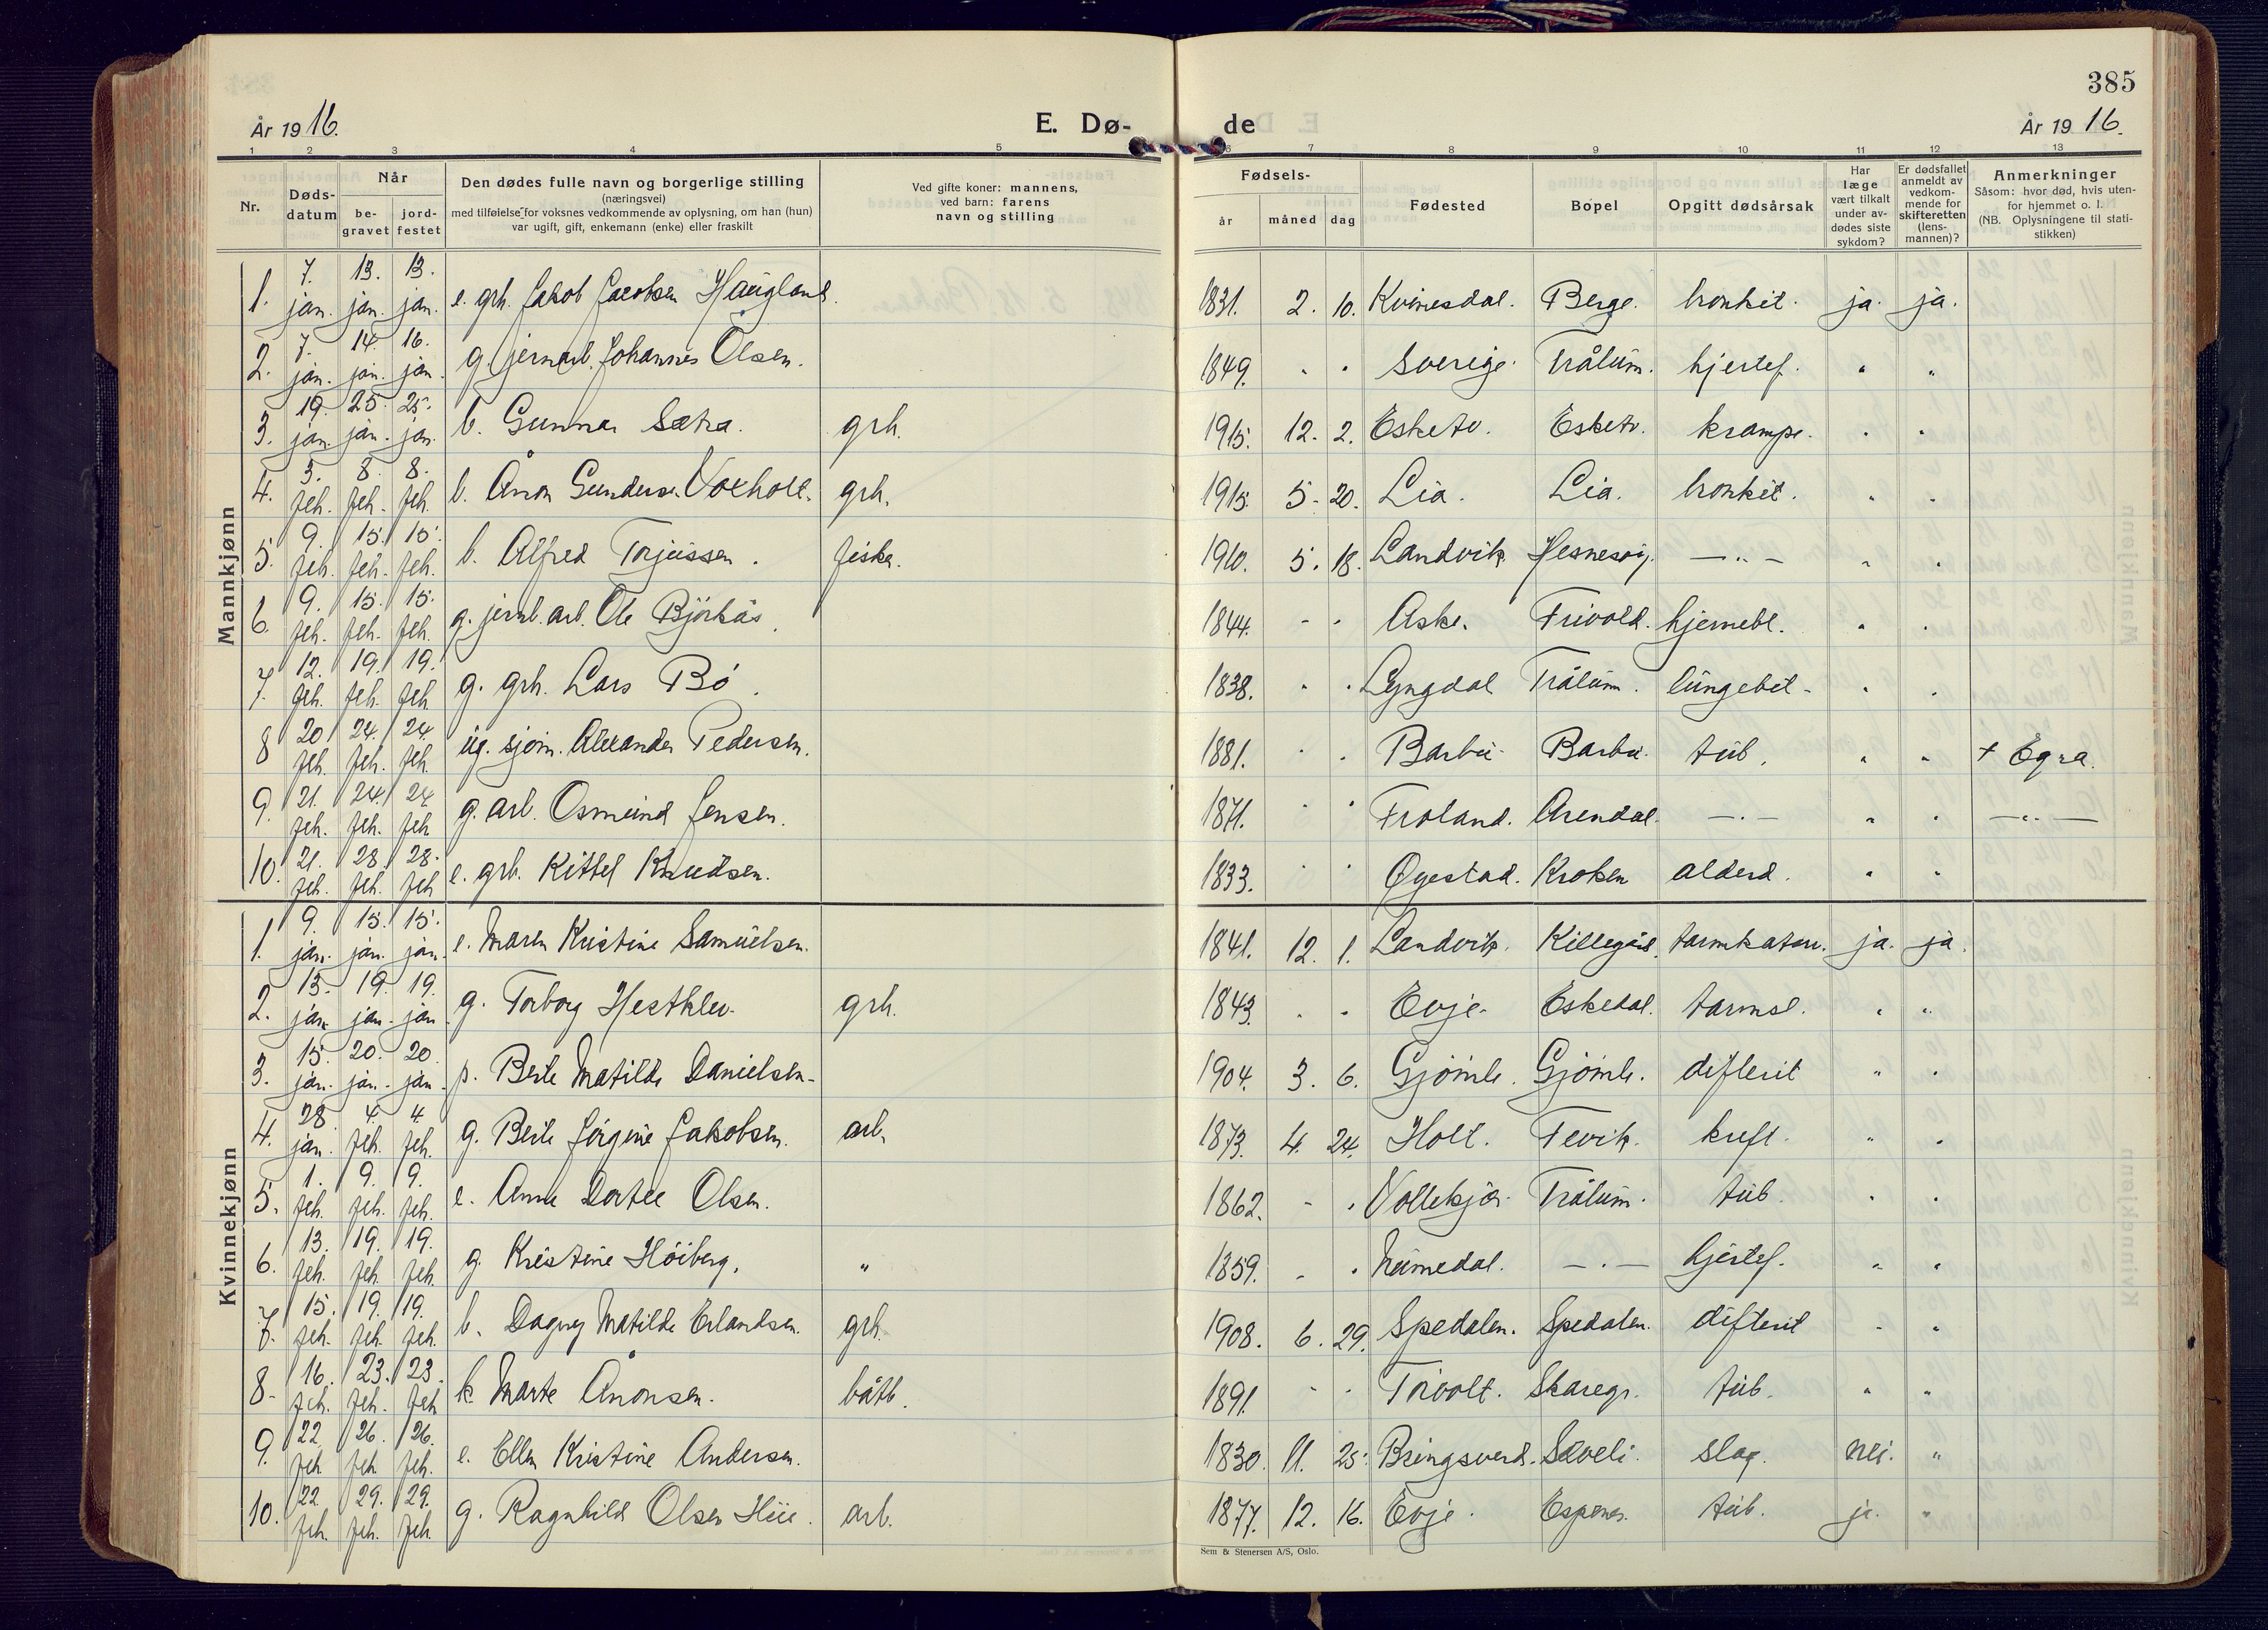 385
År 19 16.
E. Dø-
de
År 19 16.
1 2 3 4 5 6 7 8 9 10 11 12 13
Nr.
Døds-
datum
Når
be-
gravet
jord-
festet
Den dødes fulle navn og borgerlige stilling
(næringsvei)
med tilføielse for voksnes vedkommende av oplysning, om han (hun)
var ugift, gift, enkemann (enke) eller fraskilt
Ved gifte koner: mannens,
ved barn: farens
navn og stilling
Fødsels-
år måned dag
Fødested
Bopel
Opgitt dødsårsak
Har
læge
vært tilkalt
under av-
dødes siste
sykdom?
Er dødsfallet
anmeldt av
vedkom-
mende for
skifteretten
(lens-
mannen)?
Anmerkninger
Såsom: hvor død, hvis uten-
for hjemmet o. l.
(NB. Oplysningene til stati-
stikken)
Mannkjønn
1. 7. jan. 13. jan. 13. jan. e. grb. Jakob Jacobsen Haugland. 1831. 2. 10. Kvinesdal. Berge. bronkit. ja. ja.
2. 7. jan. 14. jan. 16. jan. g. jernarb. Johannes Olsen. 1849. " " Sverige. Trålum. hjertef. " "
3. 19. jan. 25. jan. 25. jan. b. Gunnar Sætra. grb. 1915. 12. 2. Esketv. Esketv. krampe. " "
4. 3. feb. 8. feb. 8. feb. b. Ånon Gunderse. Voxholt. grb. 1915. 5. 20. Lia. Lia. bronkit. " "
5. 9. feb. 15. feb. 15. feb. b. Alfred Torjussen. fisker. 1910. 5. 18. Landvik Hesnesøy. —"— " "
6. 9. feb. 15. feb. 15. feb. g. jernb. arb. Ole Björkås. 1844. " " Aske. Frivold. hjernebl. " "
7. 12. feb. 19. feb. 19. feb. g. grb. Lars Bö. 1838. " " Lyngdal Trålum. lungebet. " "
8 20 feb. 24. feb. 24. feb. ug. sjöm. Alexander Pedersen. 1881. " " Barbu. Barbu. tub. " " + Egra.
9. 21. feb. 24. feb. 24. feb g. arb. Osmund Jensen. 1871. " " Froland. Arendal. —"— " " —"—
10. 21. feb. 28. feb. 28. feb e. grb. Kittel Knudsen. 1833. " " Øyestad. Kroken alderd. " "
Kvinnekjønn
1. 9. jan. 15. jan. 15. jan. e. Maren Kristine Samuelsen. 1841. 12. 1. Landvik. Killegård. tarmkatarr. ja. ja.
2. 13. jan. 19. jan. 19. jan g. Torborg Hestklev. grb. 1843. " " Evje. Eskedal. tarmsl. " "
3. 15. jan. 20. jan. 20 jan p. Berte Matilde Danielsen. 1904. 3. 6. Gjömle. Gjömle. difterit " "
4. 28. jan. 4. feb. 4. feb. g. Berte Jörgine Jakobsen. arb. 1873. 4. 24. Holt. Fevik. kreft. " "
5. 1. feb. 9. feb. 9. feb. e. Anne Dortee Olsen. 1862. " " Vollekjær Trålum. tub. " "
6. 13. feb. 19. feb. 19. feb. g. Kristine Höiberg. " 1859. " " Numedal. —"— hjertef. " "
7. 15. feb. 19. feb. 19. feb. b. Dagny Matilde Erlandsen. grb. 1908. 6. 29. Spedalen. Spedalen. difterit " "
8. 16. feb. 23. feb. 23. feb k. Marte Ånonsen. båtb. 1891. " " Torvolt. Skaregr. tub. " "
9. 22. feb 26. feb 26. feb. e. Ellen Kristine Andersen. 1830. 11. 25. Bringsverd. Sæveli. slag. nei. "
10. 22 feb. 29. feb. 29. feb g. Ragnhild Olsen Hue. arb. 1877. 12. 16. Evje. Espenes. tub. ja. "
Sem & Stenersen A/S, Oslo.